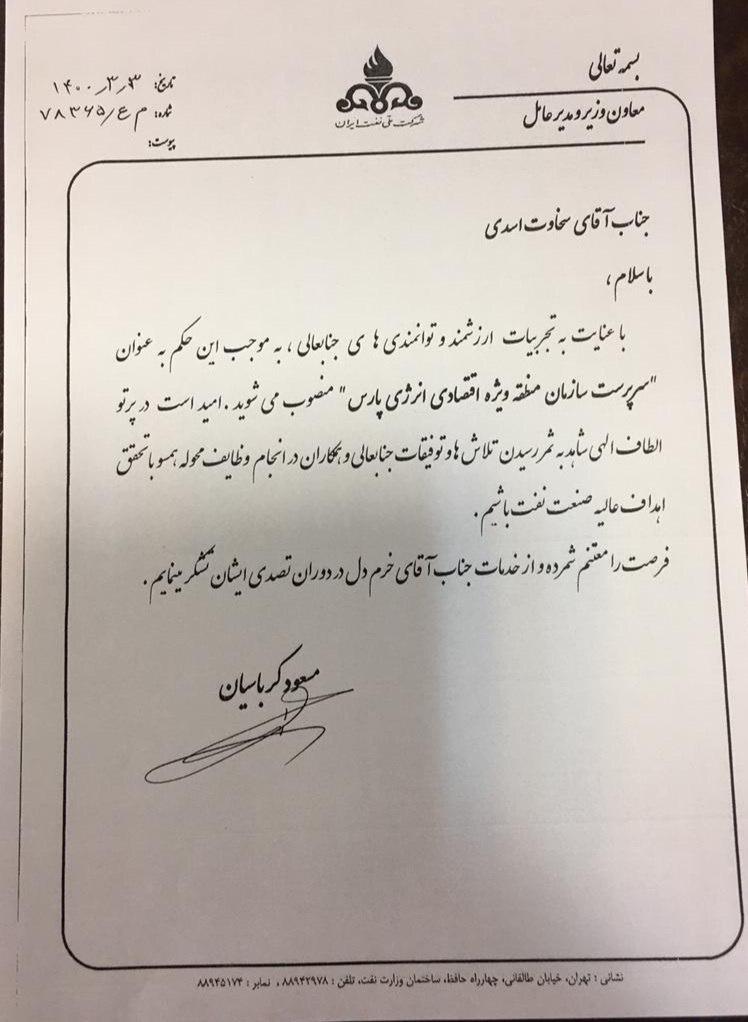 بسمه تعالی
معاون وزیر و مدیر عامل
شرکت ملی نفت ایران
تاریخ: ۱۴۰۰٫۳٫۳
شماره: م ع/۷۸۳۶۵
پیوست:
جناب آقای سخاوت اسدی
با سلام ،
با عنایت به تجربیات ارزشمند و توانمندی ها ی جنابعالی ، به موجب این حکم به عنوان
"سرپرست سازمان منطقه ویژه اقتصادی انرژی پارس" منصوب می شوید . امید است در پرتو
الطاف الهی شاهد به ثمر رسیدن تلاش ها و توفیقات جنابعالی و همکاران در انجام وظایف محوله همسو با تحقق
اهداف عالیه صنعت نفت باشیم .
فرصت را مغتنم شمرده و از خدمات جناب آقای خرم دل در دوران تصدی ایشان تشکر مینمایم .
مسعود کرباسیان
نشانی : تهران، خیابان طالقانی، چهارراه حافظ، ساختمان وزارت نفت، تلفن : ۸۸۹۴۲۹۷۸ ، نمابر : ۸۸۹۴۵۱۷۴